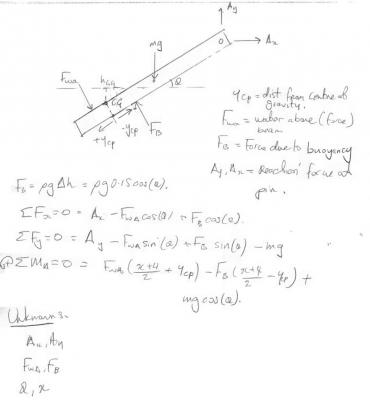 Ay
Ax
O
mg
Fwa
hcg
CG
Q
+ycp
-ycp
FB
ycp = dist from centre of
gravity.
Fwa = water above (force)
beam
FB = Force due to buoyancy
Ay, Ax = Reaction force at
pin.
FB = ρgΔh = ρg0.15cos(Q).
ΣFx=0 = Ax - FwAcos(Q) + FB cos(Q).
ΣFy=0 = Ay - FwA sin(Q) + FB sin(Q) - mg
ΣMA=0 = FwA (x+4/2 + ycp) - FB (x+4/2 - ycp) +
mg cos(Q).
Unknowns:
Ax, Ay
FwA, FB
Q, x